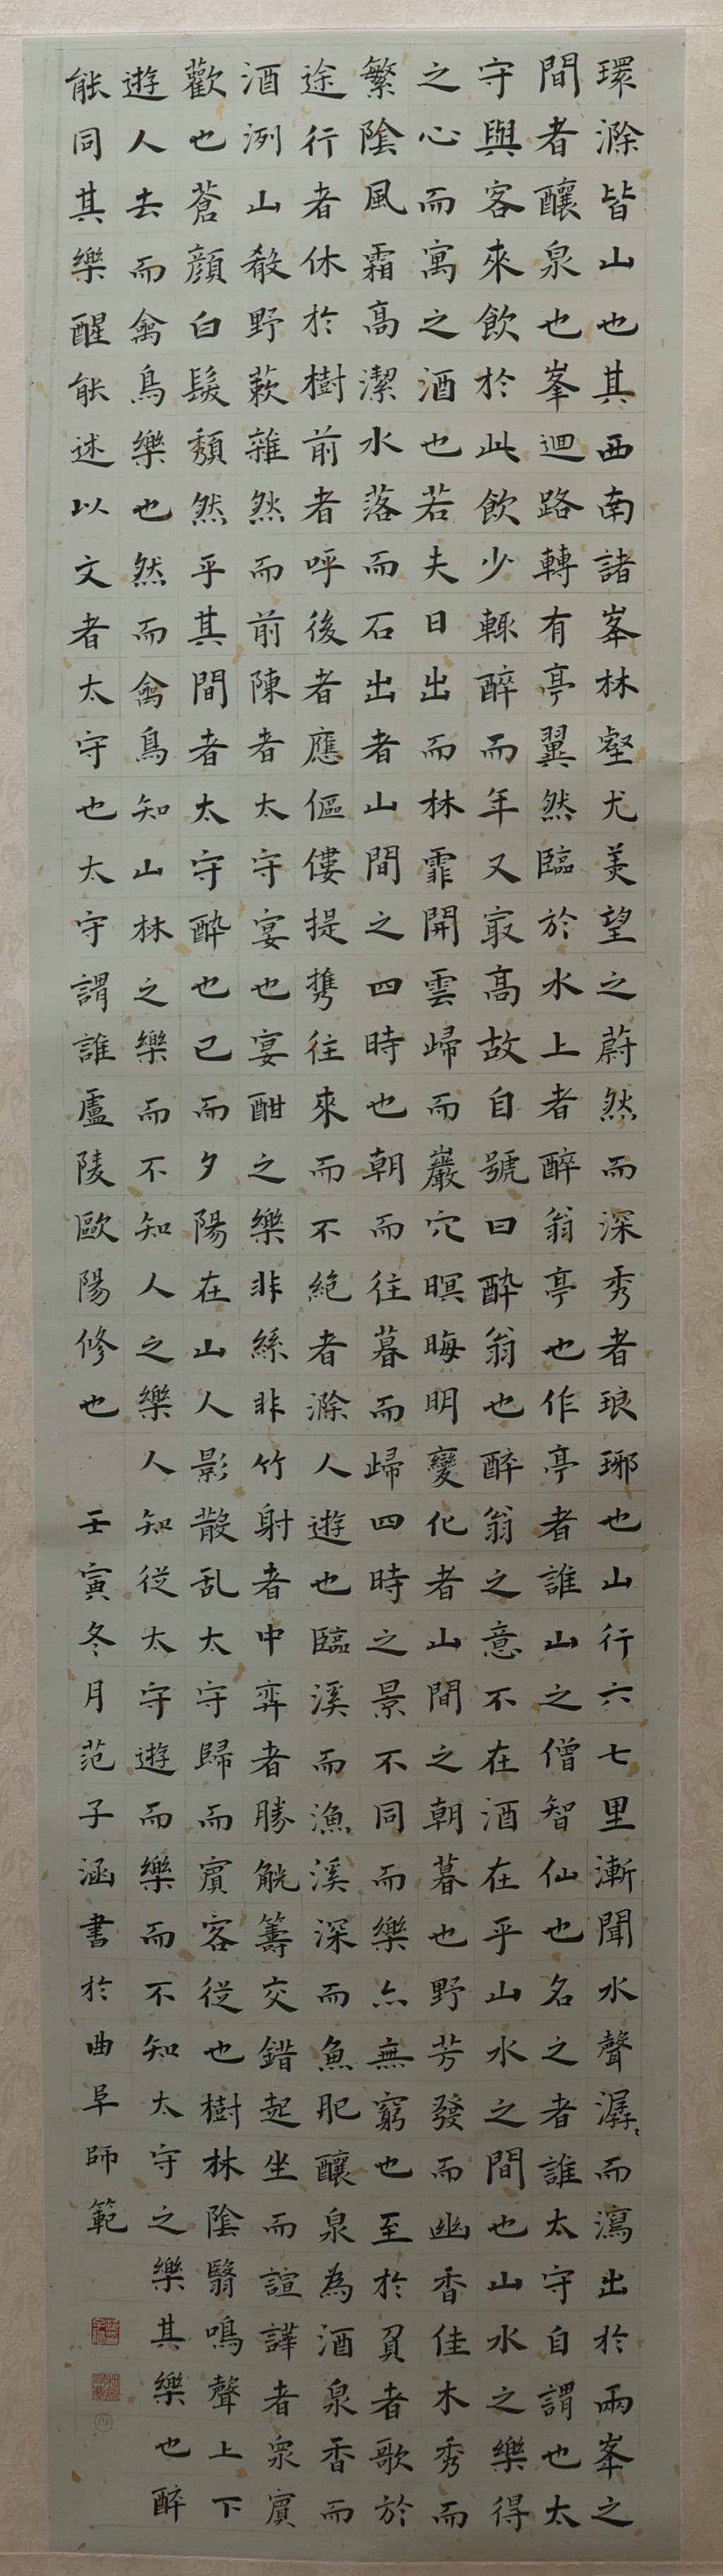 環滁皆山也其西南諸峯林壑尤美望之蔚然而深秀者琅琊也山行六七里漸聞水聲潺々而瀉出於兩峯之
間者釀泉也峯迴路轉有亭翼然臨於水上者醉翁亭也作亭者誰山之僧智仙也名之者誰太守自謂也太
守與客來飲於此飲少輒醉而年又最高故自號曰醉翁也醉翁之意不在酒在乎山水之間也山水之樂得
之心而寓之酒也若夫日出而林霏開雲歸而巖穴暝晦明變化者山間之朝暮也野芳發而幽香佳木秀而
繁陰風霜高潔水落而石出者山間之四時也朝而往暮而歸四時之景不同而樂亦無窮也至於負者歌於
途行者休於樹前者呼後者應傴僂提携往來而不絕者滁人遊也臨溪而漁溪深而魚肥釀泉為酒泉香而
酒洌山殽野蔌雜然而前陳者太守宴也宴酣之樂非絲非竹射者中弈者勝觥籌交錯起坐而諠譁者衆賓
歡也蒼顏白髮頹然乎其間者太守醉也已而夕陽在山人影散乱太守歸而賓客從也樹林陰翳鳴聲上下
遊人去而禽鳥樂也然而禽鳥知山林之樂而不知人之樂人知從太守遊而樂而不知太守之樂其樂也醉
能同其樂醒能述以文者太守也太守謂誰廬陵歐陽修也 壬寅冬月范子涵書於曲阜師範